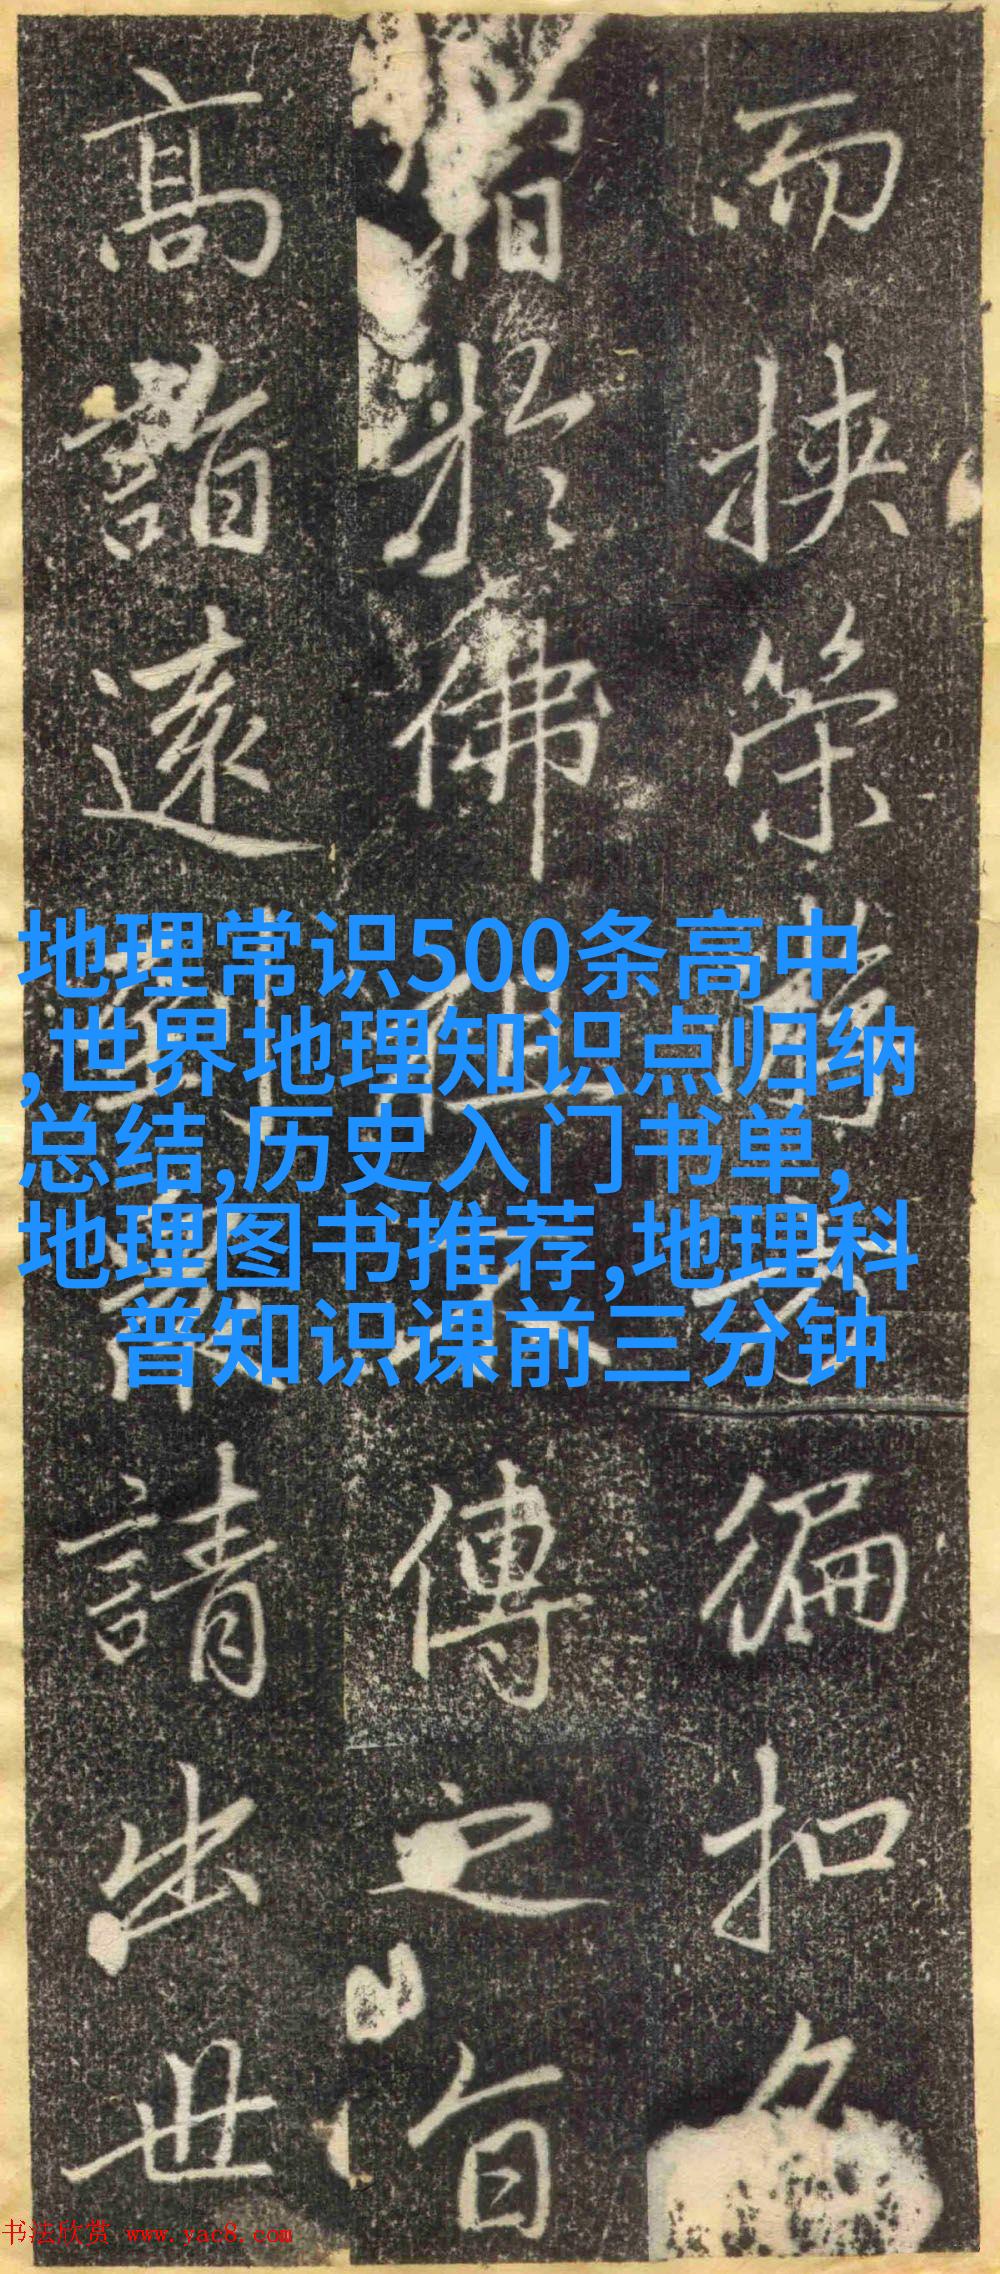 而挾策
徧扣
於佛祖不傳之旨
高詣遠
請出世
地理常识500条高中
,世界地理知识点归纳
总结,历史入门书单,
地理图书推荐,地理科
普知识课前三分钟
书法欣赏 www.yac8.com